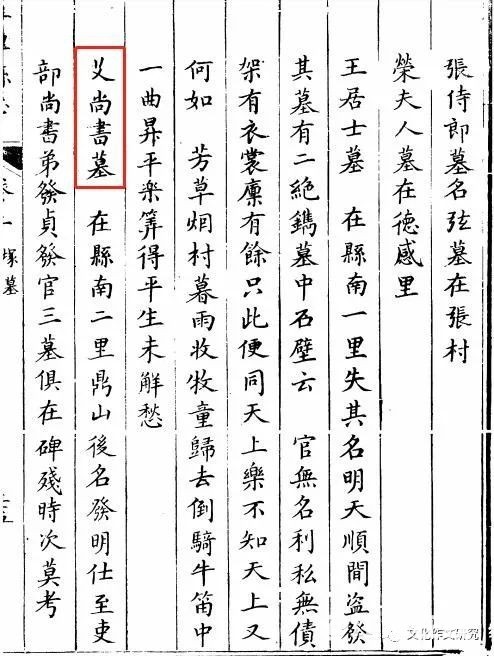 張侍郎墓名弦墓在張村
榮夫人墓在德感里
王居士墓 在縣南一里失其名明天順間盜發
其墓有二絶鐫墓中石壁云 官無名利私無債
架有衣裳廩有餘只此便同天上樂不知天上又
何如 芳草烟村暮雨收牧童歸去倒騎牛笛中
一曲昇平樂筭得平生未解愁
艾尚書墓 在縣南二里鼎山後名發明仕至吏
部尚書弟發貞發官三墓俱在碑殘時次莫考
塚墓
文化作文研究